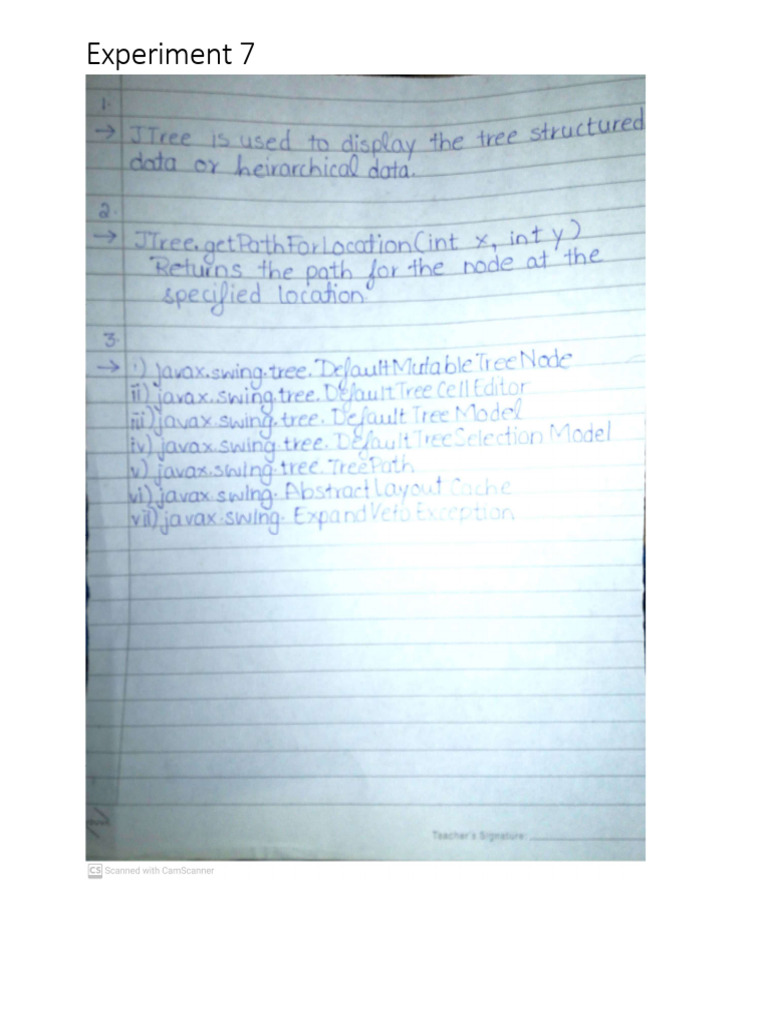 Experiment 7
1.
→ JTree is used to display the tree structured
data or heirarchical data.
2.
→ JTree.getPathForLocation(int x, int y)
Returns the path for the node at the
specified location
3.
→ i) javax.swing.tree.DefaultMutableTreeNode
ii) javax.swing.tree.DefaultTreeCellEditor
iii) javax.swing.tree.DefaultTreeModel
iv) javax.swing.tree.DefaultTreeSelectionModel
v) javax.swing.tree.TreePath
vi) javax.swing.AbstractLayoutCache
vii) javax.swing.ExpandVetoException
Teacher's Signature:
CS Scanned with CamScanner